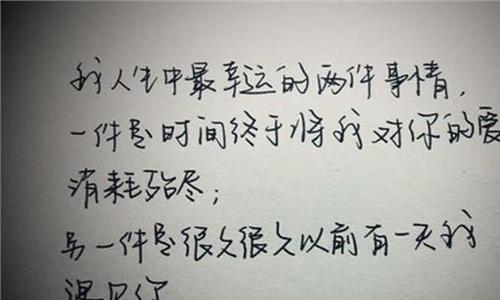 我人生中最幸运的两件事情，
一件是时间终于将我对你的爱
消耗殆尽；
另一件是很久很久以前有一天我
遇见你